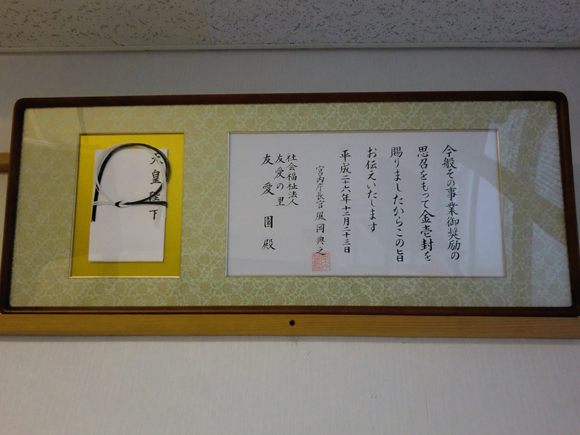 今般その事業御奨励の
思召をもって金壱封を
賜りましたからこの旨
お伝えいたします
平成二十六年十二月二十三日
宮内庁長官 風岡典之
社会福祉法人
友愛の里
友愛園殿
天皇陛下